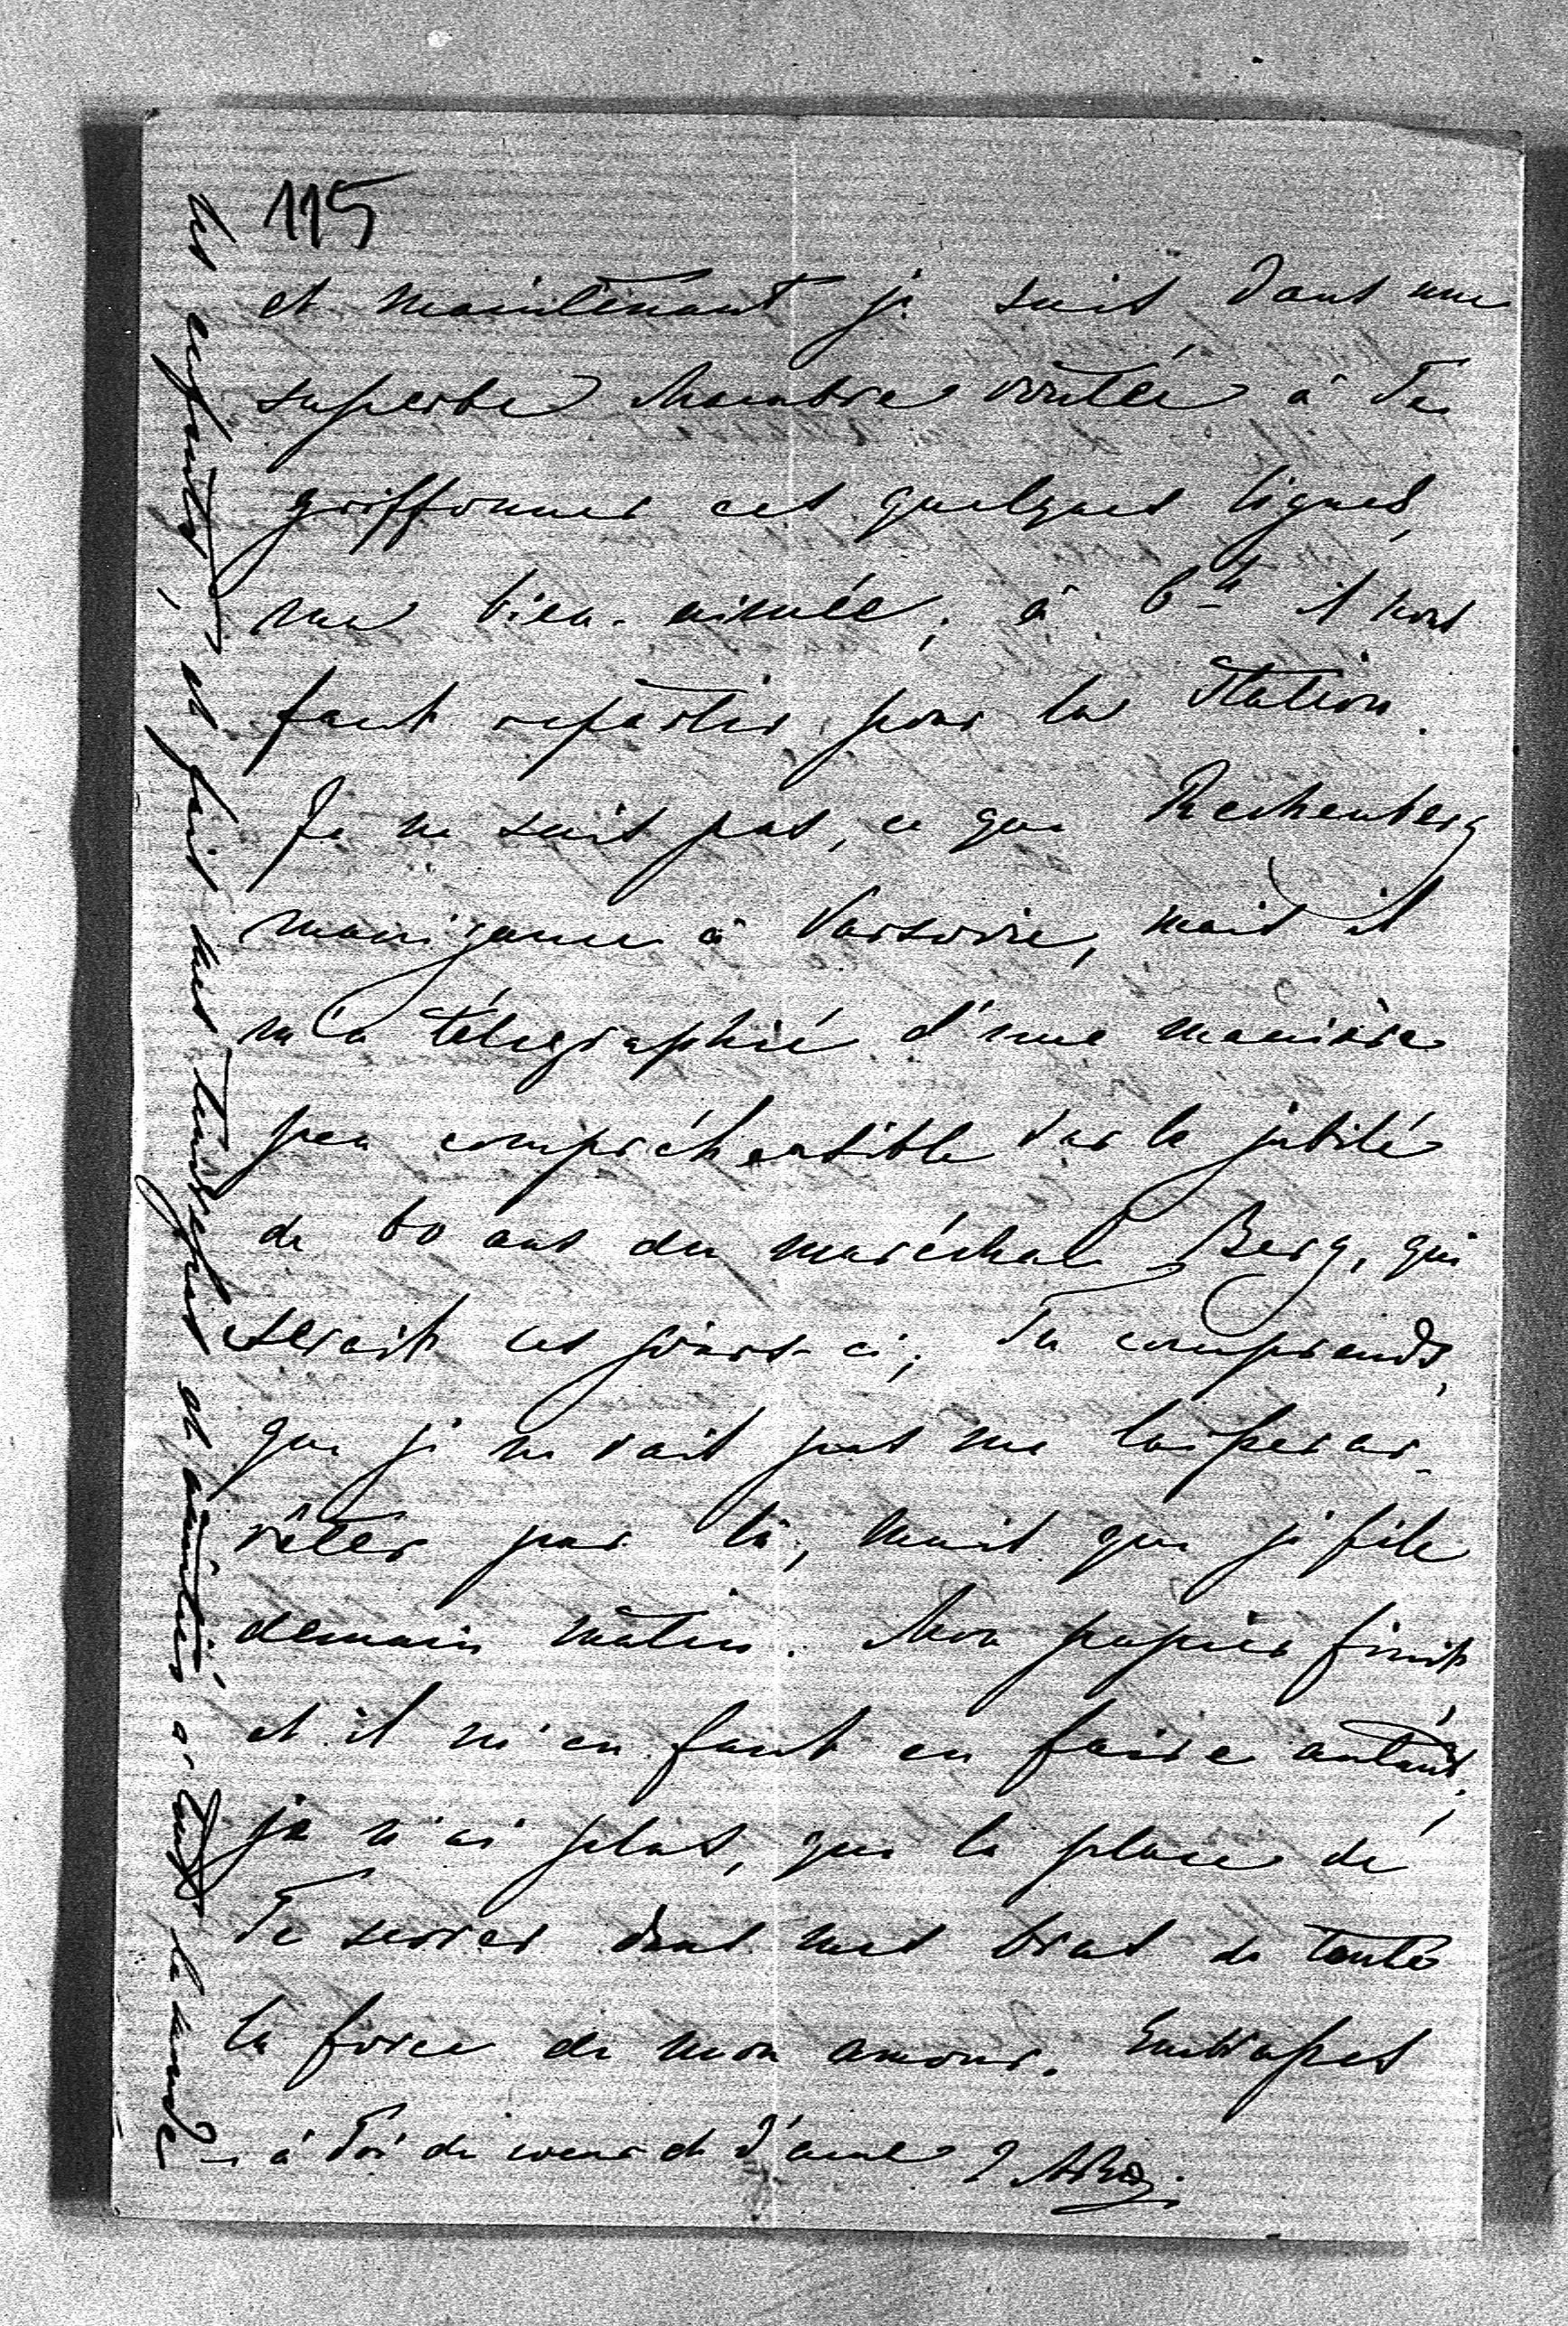 115
et maintenant je suis dans une
superbe chambre voutée à Te
griffonner ces quelques lignes,
ma bien-aimée; à 6 h il nous
faut repartir pour la station.
Je ne sais pas, ce que Rechenberg
manigance à Varsovie, mais il
m'a télégraphié d'une manière
peu compréhensible sur le jubilé
de 60 ans du maréchal Berg, qui
serait ces jours-ci; Tu comprends,
que je ne vais pas me laisser ar-
rêter par là, mais que je file
demain matin. Mon papier finit
et il m'en faut en faire autant;
je n'ai plus, que la place de
Te serrer dans mes bras de toute
la force de mon amour. Embrasses
les enfants, et fais mes tendresses et amitiés à tout le monde
– à Toi de coeur et d'âme